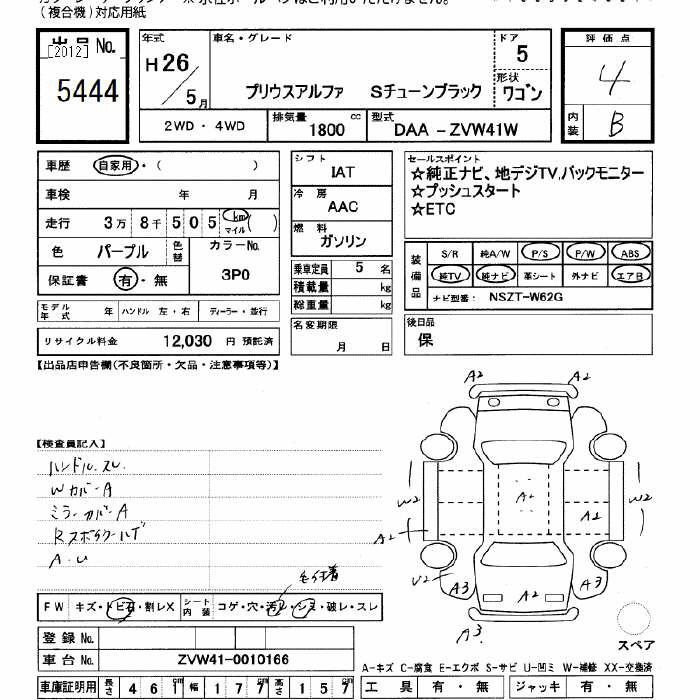 (複合機)対応用紙
出品 No.
[2012]
5444
年式
H26
5月
車名・グレード
プリウスアルファ Sチューンブラック
ドア
5
形状
ワゴン
2WD・4WD
排気量
1800 cc
型式
DAA-ZVW41W
評価点
4
内装
B
車歴 自家用・( )
車検 年 月
走行 3万8千505 km マイル( )
色 パープル
色替
カラーNo.
3P0
保証書 有・無
モデル年式 年 ハンドル 左・右 ディーラー・並行
リサイクル料金 12,030 円 預託済
シフト
IAT
冷房
AAC
燃料
ガソリン
乗車定員 5 名
積載量 kg
総重量 kg
名変期限
月 日
セールスポイント
☆純正ナビ、地デジTV,バックモニター
☆プッシュスタート
☆ETC
装備品
S/R 純A/W P/S P/W ABS
純TV 純ナビ 革シート 外ナビ エアB
ナビ型番: NSZT-W62G
後日品
保
【出品店申告欄(不良箇所・欠品・注意事項等)】
【検査員記入】
ハンドル.スレ
Wカバー A
ミラーカバー A
A.U
FW キズ・トビ石・割レX シート内装 コゲ・穴・汚レ・シミ・破レ・スレ
登録 No.
車台 No. ZVW41-0010166
車庫証明用 長さ 461 幅 177 高さ 157
A2 A2
W2 A2 W2
A2 A2
U2 A3 A2 A3
A3
スペア
A-キズ C-腐食 E-エクボ S-サビ U-凹ミ W-補修 XX-交換済
工具 有・無 ジャッキ 有・無